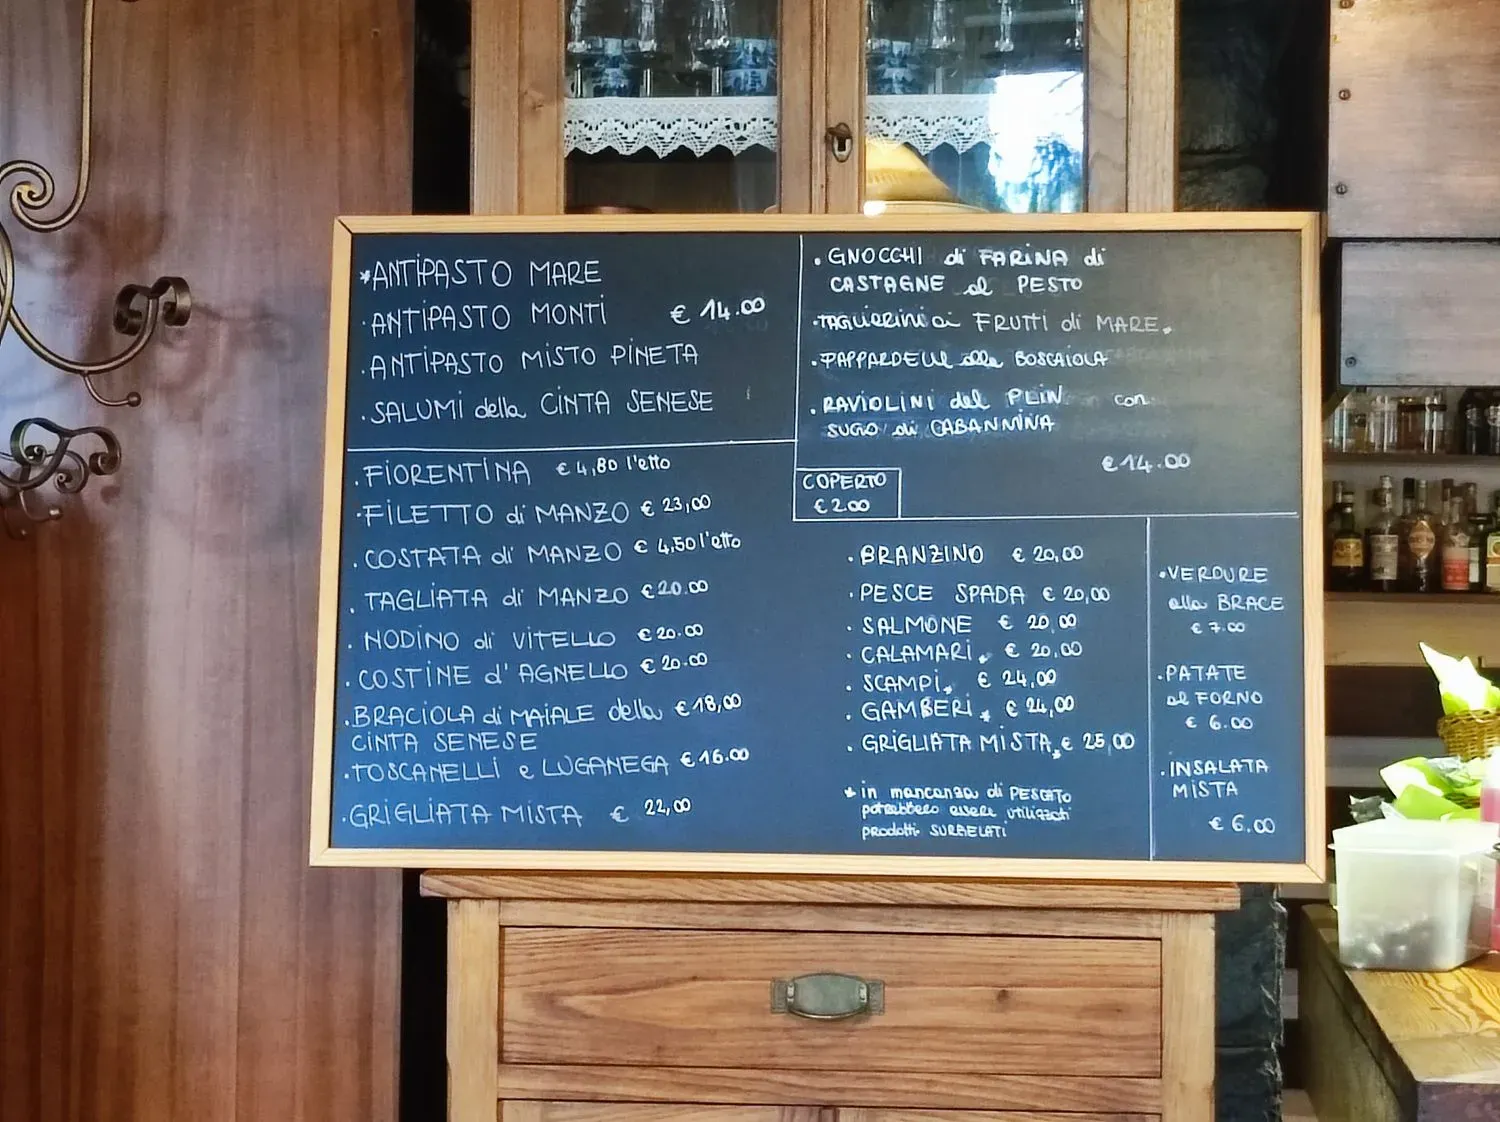 *ANTIPASTO MARE
·ANTIPASTO MONTI € 14.00
·ANTIPASTO MISTO PINETA
·SALUMI della CINTA SENESE
·GNOCCHI di FARINA di
CASTAGNE al PESTO
·TAGLIERINI ai FRUTTI di MARE*
·PAPPARDELLE alla BOSCAIOLA
·RAVIOLINI del PLIN con
SUGO di CABANNINA
€ 14.00
COPERTO
€ 2.00
·FIORENTINA € 4,80 l'etto
·FILETTO di MANZO € 23,00
·COSTATA di MANZO € 4,50 l'etto
·TAGLIATA di MANZO € 20.00
·NODINO di VITELLO € 20.00
·COSTINE d'AGNELLO € 20.00
·BRACIOLA di MAIALE della € 18,00
CINTA SENESE
·TOSCANELLI e LUGANEGA € 16.00
·GRIGLIATA MISTA € 22,00
·BRANZINO € 20,00
·PESCE SPADA € 20,00
·SALMONE € 20,00
·CALAMARI* € 20,00
·SCAMPI* € 24,00
·GAMBERI* € 24,00
·GRIGLIATA MISTA* € 25,00
* in mancanza di PESCATO
potrebbero essere utilizzati
prodotti SURGELATI
·VERDURE
alla BRACE
€ 7.00
·PATATE
al FORNO
€ 6.00
·INSALATA
MISTA
€ 6.00